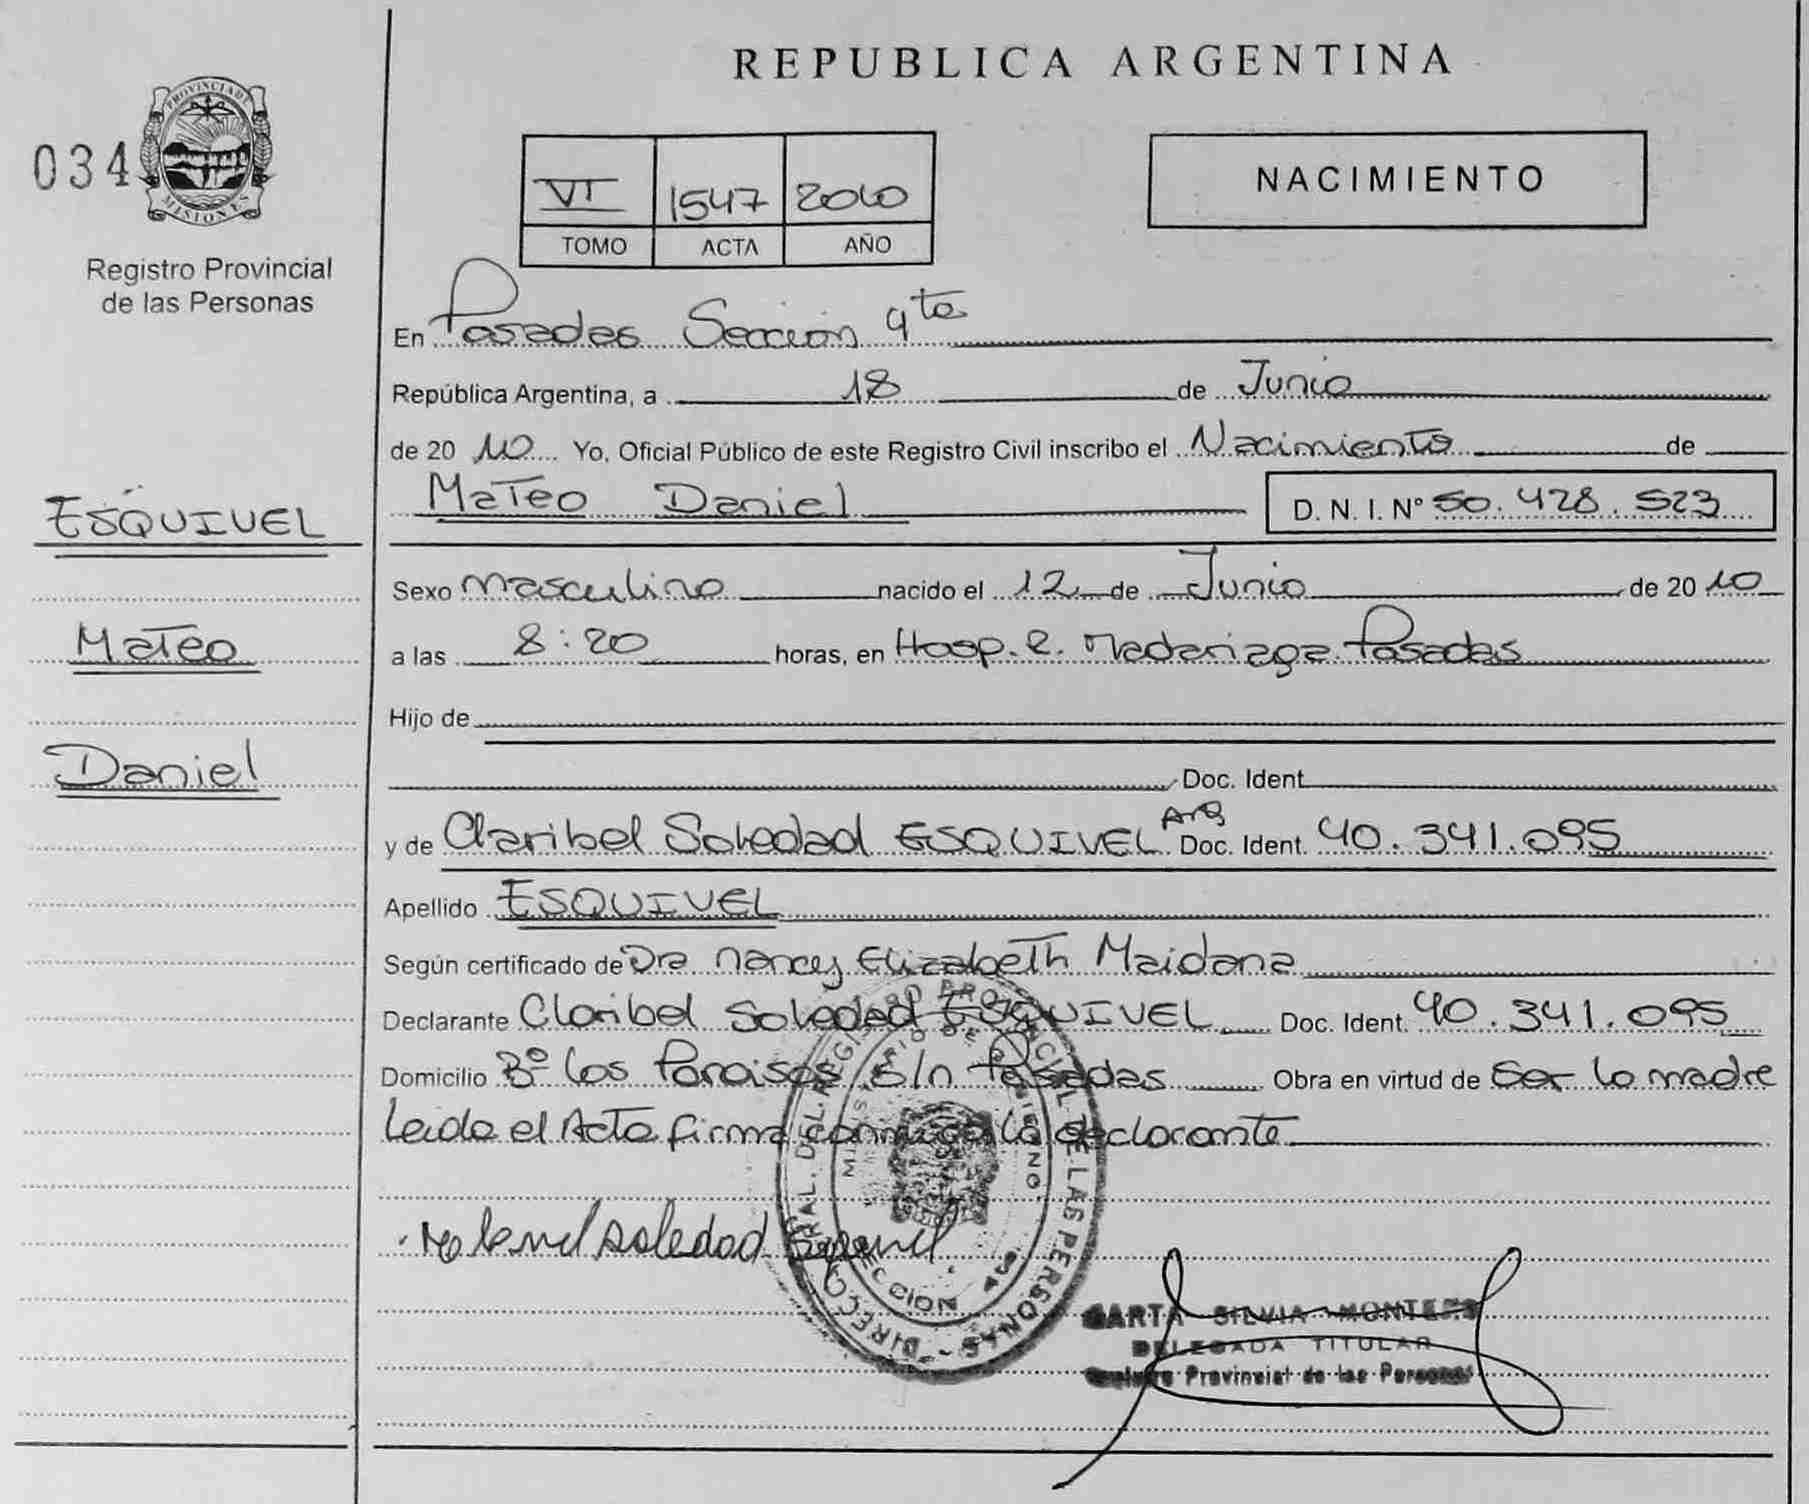 REPUBLICA ARGENTINA
034
PROVINCIA DE
MISIONES
Registro Provincial
de las Personas
VI 1547 2010
TOMO ACTA AÑO
NACIMIENTO
En Posadas Sección 4ta
República Argentina, a 18 de Junio
de 20 10 Yo, Oficial Público de este Registro Civil inscribo el Nacimiento de
Mateo Daniel D. N. I. Nº 50.428.523
ESQUIVEL
Mateo
Daniel
Sexo masculino nacido el 12 de Junio de 20 10
a las 8:20 horas, en Hosp. R. Madariaga Posadas
Hijo de
Doc. Ident.
y de Claribel Soledad ESQUIVEL Arg Doc. Ident. 40.341.095
Apellido ESQUIVEL
Según certificado de Dra Nancy Elizabeth Maidana
Declarante Claribel Soledad ESQUIVEL Doc. Ident. 40.341.095
Domicilio Bº Los Paraisos s/n Posadas Obra en virtud de ser la madre
Leida el Acta firma conmigo la declarante
soledad
DIRECCION GRAL. DEL REGISTRO PROVINCIAL DE LAS PERSONAS
MINISTERIO DE GOBIERNO
SILVIA MONTERO
DELEGADA TITULAR
Provincial de las Personas